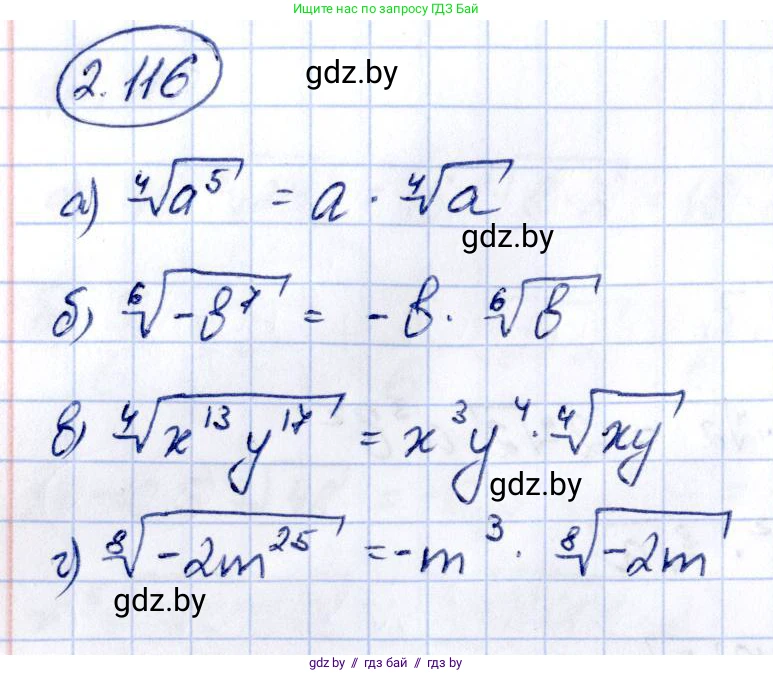 Ищите нас по запросу ГДЗ Бай
2.116
gdz.by
а) ⁴√(a⁵) = a · ⁴√a
gdz.by
б) ⁶√(-b⁷) = -b · ⁶√b
в) ⁴√(x¹³y¹⁷) = x³y⁴ · ⁴√(xy)
gdz.by
г) ⁸√(-2m²⁵) = -m³ · ⁸√(-2m)
gdz.by
gdz.by // гдз бай // гдз by